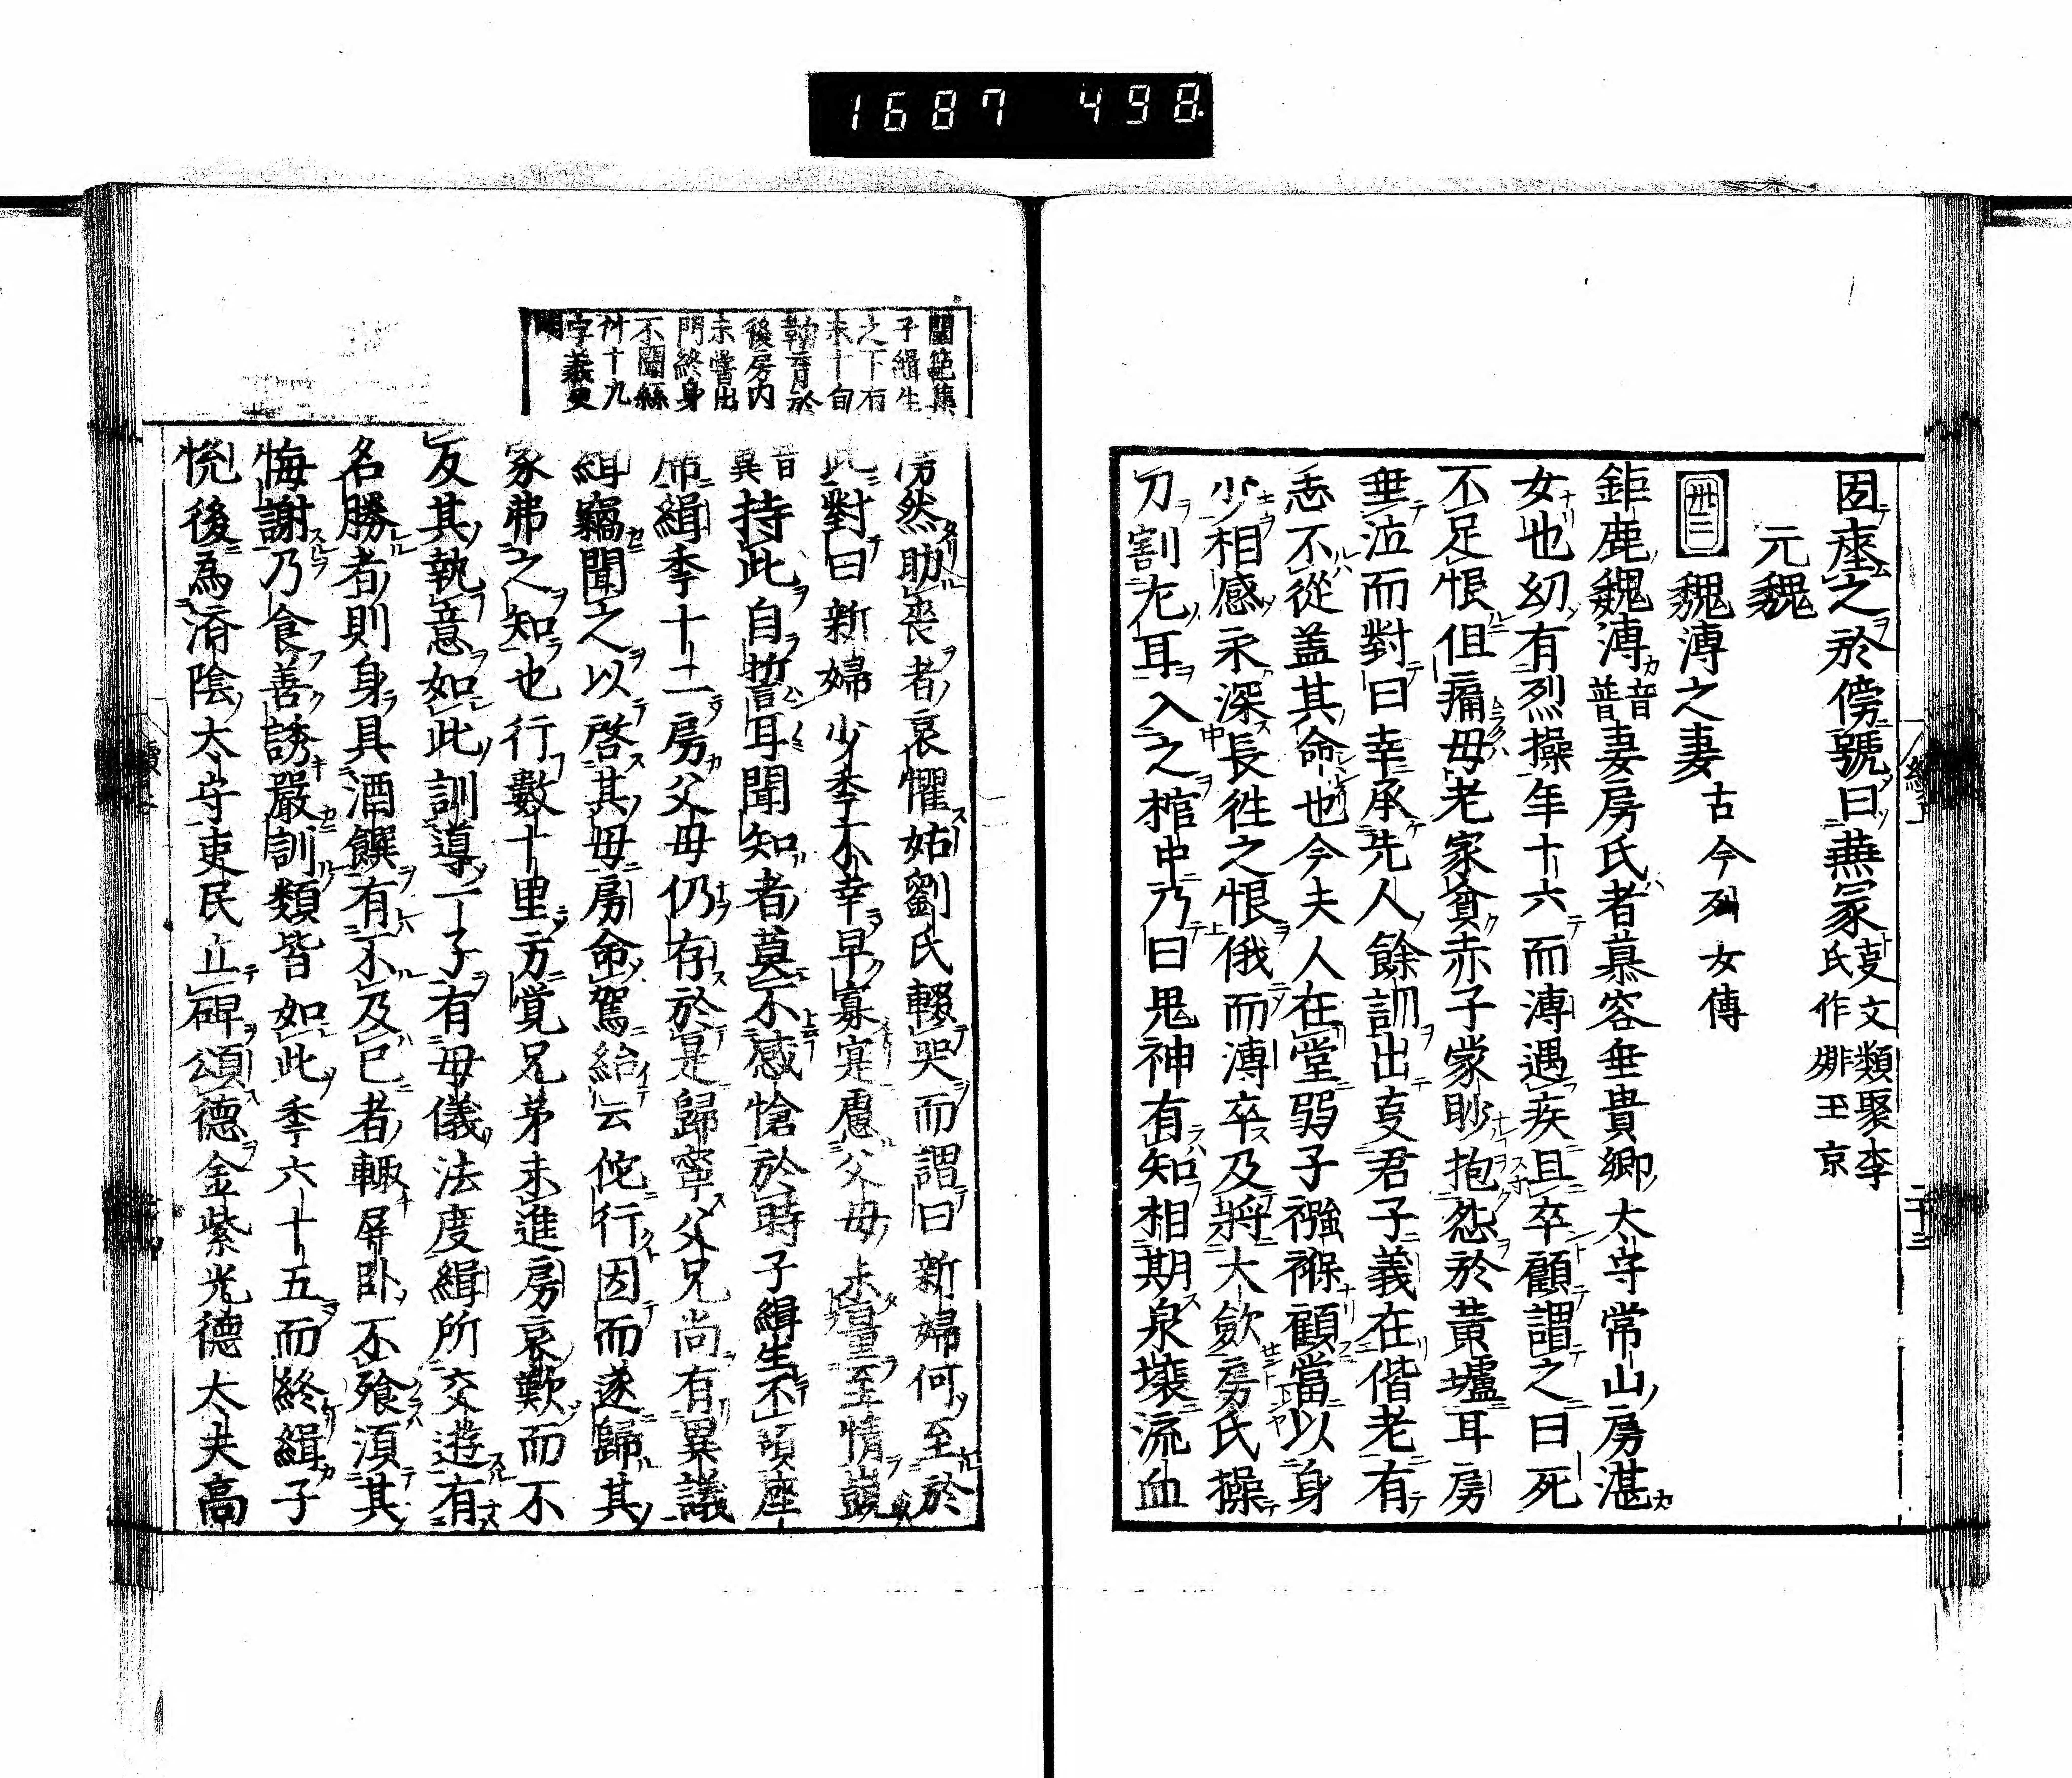 1687 498
因瘞之於傍號曰燕冢 事文類聚李氏作姚玉京
元魏
卅二 魏溥之妻 古今列女傳
鉅鹿魏溥 音普 妻房氏者慕容垂貴卿太守常山房湛
女也幼有烈操年十六而溥遇疾且卒顧謂之曰死
不足恨但痛母老家貧赤子蒙眇抱怨於黃壚耳房
垂泣而對曰幸承先人餘訓出事君子義在偕老有
志不從蓋其命也今夫人在堂弱子襁褓顧當以身
少相感永深長徃之恨俄而溥卒及將大斂房氏操
刀割左耳入之棺中乃曰鬼神有知相期泉壤流血
閨範集
子緝生
之下有
未十旬
鞠育於
後房内
未嘗出
門終身
不聞絲
竹十九
字義更
明
滂然助喪者哀懼姑劉氏輟哭而謂曰新婦何至於
此對曰新婦少年不幸早寡寔慮父母未量至情覬
音冀 持此自誓耳聞知者莫不感愴於時子緝生不頃座
席緝年十二房父母仍存於是歸寧父兄尚有異議
緝竊聞之以啓其母房命駕給云佗行因而遂歸其
家弗之知也行數十里方覚兄弟未進房哀歎而不
反其執意如此訓導一子有母儀法度緝所交遊有
名勝者則身具酒饌有不及已者輙屏卧不飡湏其
悔謝乃食善誘嚴訓類皆如此年六十五而終緝子
悅後為濟陰太守吏民立碑頌德金紫光德大夫高